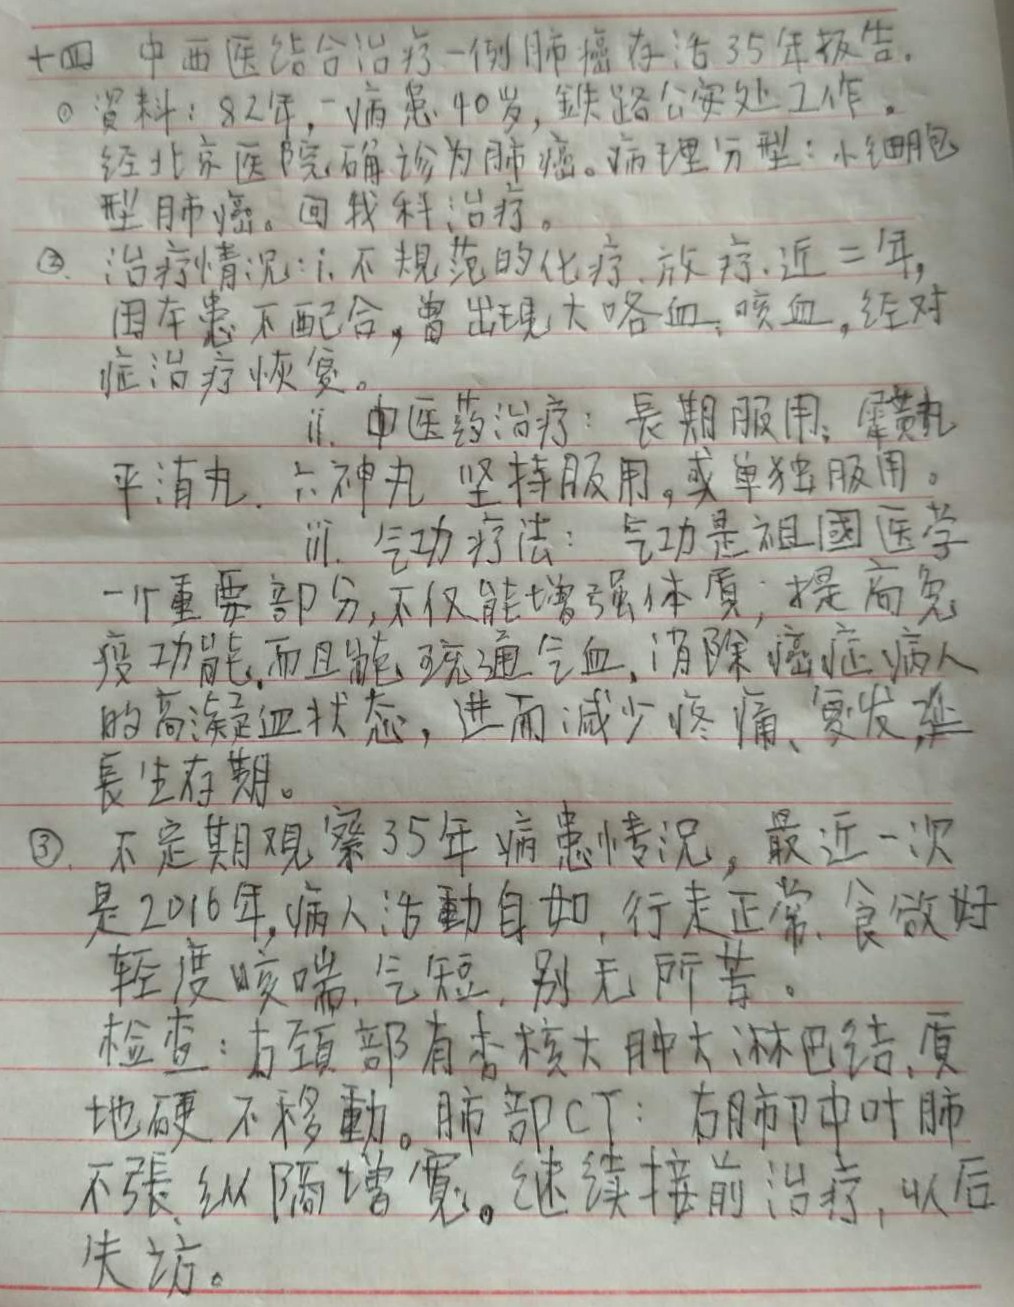 十四 中西医结合治疗一例肺癌存活35年报告.
① 資料：82年，一病患40岁，鉄路公安处工作。
经北京医院确诊为肺癌。病理分型：小细胞
型肺癌。回我科治疗。
②. 治疗情况：i. 不規范的化疗.放疗.近二年，
因本患不配合，曾出現大咯血、咳血，经对
症治疗恢复。
ii. 中医药治疗：長期服用：犀黄丸
平消丸.六神丸 坚持服用。或单独服用。
iii. 气功疗法：气功是祖國医学
一个重要部分，不仅能增强体質；提高免
疫功能，而且能疏通气血、消除癌症病人
的高凝血状态，进而减少疼痛、复发，延
長生存期。
③. 不定期观察35年病患情况，最近一次
是2016年，病人活動自如，行走正常、食欲好
轻度咳喘、气短，别无所苦。
检查：右頚部有杏核大肿大淋巴结，质
地硬不移動。肺部CT：右肺中叶肺
不張，纵隔增寬。继续接前治疗，以后
失访。